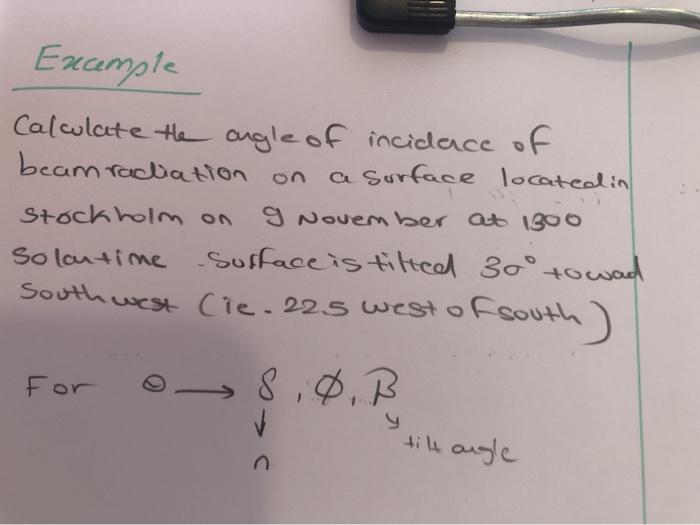 Example
Calculate the angle of incidence of
beam radiation on a surface located in
Stockholm on 9 November at 1300
Solar time. Surface is tilted 30° toward
Southwest (ie. 22.5 west of south)
For Θ → δ, Ø, β
↓ ↘ tilt angle
n